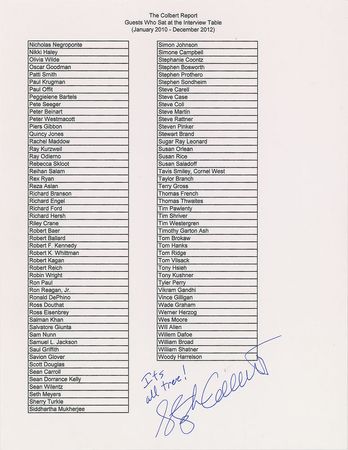 The Colbert Report
Guests Who Sat at the Interview Table
(January 2010 - December 2012)
Nicholas Negroponte
Nikki Haley
Olivia Wilde
Oscar Goodman
Patti Smith
Paul Krugman
Paul Offit
Peggielene Bartels
Pete Seeger
Peter Beinart
Peter Westmacott
Piers Gibbon
Quincy Jones
Rachel Maddow
Ray Kurzweil
Ray Odierno
Rebecca Skloot
Reihan Salam
Rex Ryan
Reza Aslan
Richard Branson
Richard Engel
Richard Ford
Richard Hersh
Riley Crane
Robert Baer
Robert Ballard
Robert F. Kennedy
Robert K. Whittman
Robert Kagan
Robert Reich
Robin Wright
Ron Paul
Ron Reagan, Jr.
Ronald DePinho
Ross Douthat
Ross Eisenbrey
Salman Khan
Salvatore Giunta
Sam Nunn
Samuel L. Jackson
Saul Griffith
Savion Glover
Scott Douglas
Sean Carroll
Sean Dorrance Kelly
Sean Wilentz
Seth Meyers
Sherry Turkle
Siddhartha Mukherjee
Simon Johnson
Simone Campbell
Stephanie Coontz
Stephen Bosworth
Stephen Prothero
Stephen Sondheim
Steve Carell
Steve Case
Steve Coll
Steve Martin
Steve Rattner
Steven Pinker
Stewart Brand
Sugar Ray Leonard
Susan Orlean
Susan Rice
Susan Saladoff
Tavis Smiley, Cornel West
Taylor Branch
Terry Gross
Thomas French
Thomas Thwaites
Tim Pawlenty
Tim Shriver
Tim Westergren
Timothy Garton Ash
Tom Brokaw
Tom Hanks
Tom Ridge
Tom Vilsack
Tony Hsieh
Tony Kushner
Tyler Perry
Vikram Gandhi
Vince Gilligan
Wade Graham
Werner Herzog
Wes Moore
Will Allen
Willem Dafoe
William Broad
William Shatner
Woody Harrelson
It's
all true!
Stephen Colbert